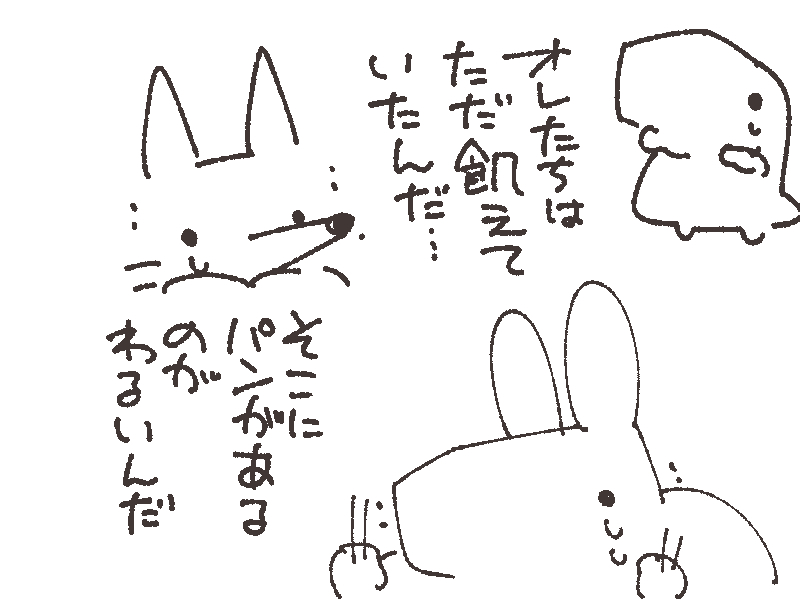 オレたちは
ただ飢えて
いたんだ…
そこに
パンがある
のが
わるいんだ